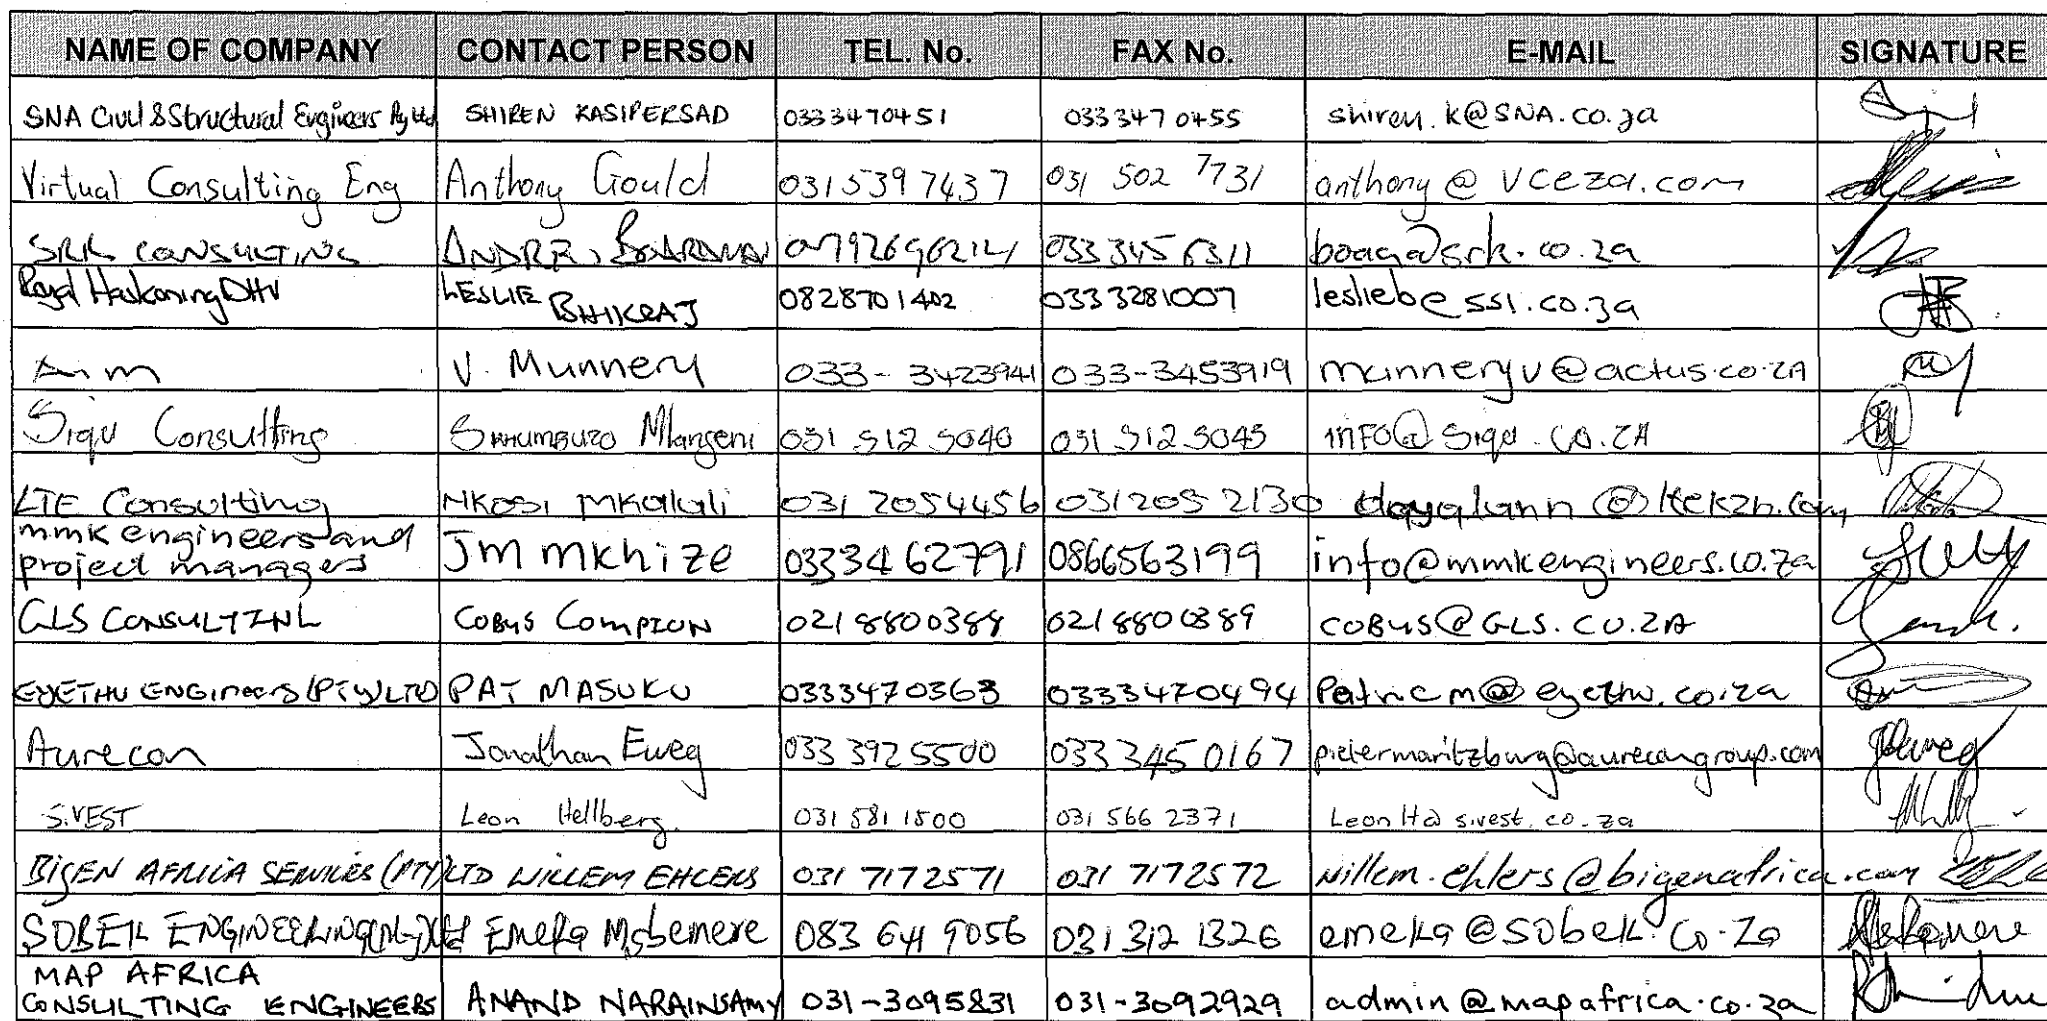 NAME OF COMPANY CONTACT PERSON TEL. No. FAX No. E-MAIL SIGNATURE
SNA Civil & Structural Engineers Pty Ltd SHIREN KASIPERSAD 0333470451 033 3470455 shiren.k@SNA.co.za
Virtual Consulting Eng Anthony Gould 031 539 7437 031 502 7731 anthony@vceza.com
SRK CONSULTING ANDRE, 0792696214 033 3456311 boag@srk.co.za
Royal HaskoningDHV LESLIE BHIKRAJ 0828701402 0333281007 leslieb@ssi.co.za
Aim V. Munnery 033-3423941 033-3453919 munneryv@actus.co.ZA
Siqu Consulting Mlangeni 031 312 5040 031 312 5045 INFO@Siqu.co.ZA
LTE Consulting Nkosi Mkalali 031 2054456 031 205 2130 dayalann@ltekzn.com
mmk engineers and
project managers Jm mkhize 03334 62791 0866563199 info@mmkengineers.co.za
GLS CONSULTING COBUS COMPION 021 8800388 021 8800389 COBUS@GLS.CO.ZA
EYETHU ENGINEERS (PTY) LTD PAT MASUKU 0333470363 0333470494 Patricm@eyethu.co.za
Aurecon Jonathan Eweg 033 3925500 033 3450167 pietermaritzburg@aurecongroup.com
SiVEST Leon Hellberg. 031 581 1500 031 566 2371 LeonH@sivest.co.za
BIGEN AFRICA SERVICES (PTY) LTD WILLEM EHLERS 031 7172571 031 7172572 willem.ehlers@bigenafrica.com
SOBEK ENGINEERING (Pty) Ltd Emeka Mgbemere 083 641 9056 031 312 1326 emeka@sobek.co.za
MAP AFRICA
CONSULTING ENGINEERS ANAND NARAINSAMY 031-3095831 031-3092929 admin@mapafrica.co.za